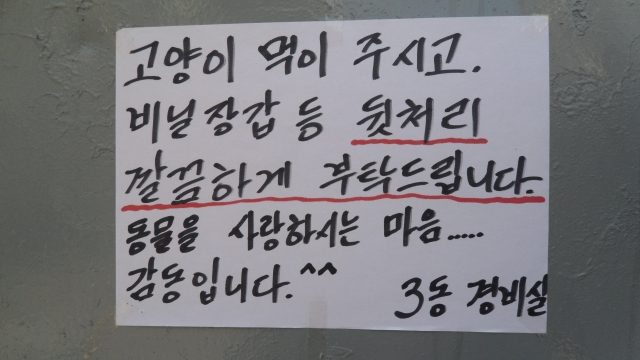 고양이 먹이 주시고.
비닐장갑 등 뒷처리
깔끔하게 부탁드립니다.
동물을 사랑하시는 마음.....
감동입니다.^^
3동 경비실